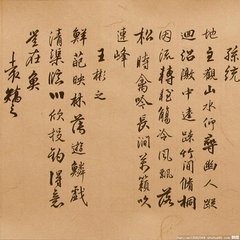 孫統
地主觀山水仰尋幽人蹤
迴沼激中逵踈竹間脩桐
因流轉輕觴冷風飄落
松時禽吟長澗萬籟吹
連峰
王彬之
鮮葩映林薄遊鱗戲
清渠臨川欣投釣得意
豈在魚
袁矯之